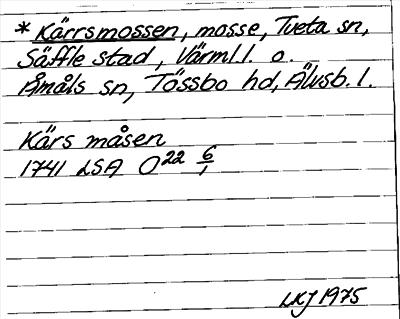 * Kärrsmossen, mosse, Tveta sn,
Säffle stad, Värml l. o.
Åmåls sn, Tössbo hd, Älvsb. l.
Kärs måsen
1741 LSA O 22 6/1
LKJ 1975